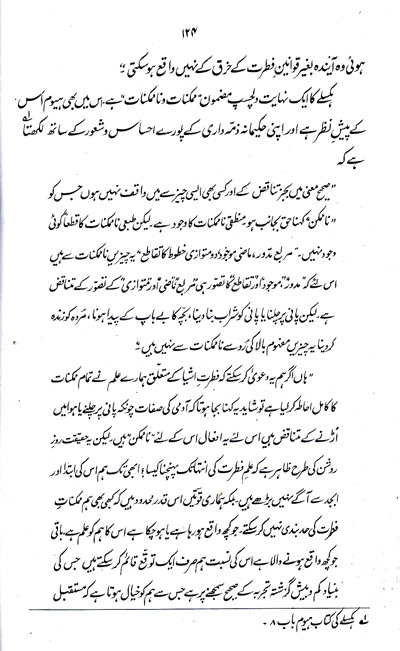 ۱۲۴
ہوئی وہ آیندہ بغیر قوانینِ فطرت کے خرق کے نہیں واقع ہو سکتی"
ہکسلے کا ایک نہایت دلچسپ مضمون "ممکنات و ناممکنات" ہے، اس میں بھی ہیوم اس
کے پیشِ نظر ہے اور اپنی حکیمانہ ذمہ داری کے پورے احساس و شعور کے ساتھ لکھتا لہ
ہے کہ
"صحیح معنی میں بجز تناقض کے اور کسی بھی ایسی چیز سے میں واقف نہیں ہوں جس کو
"ناممکن" کہنا حق بجانب ہو منطقی ناممکنات کا وجود ہے۔ لیکن طبعی ناممکنات کا قطعاً کوئی
وجود نہیں۔ "مربع مدوّر، ماضی موجود، دو متوازی خطوط کا تقاطع" یہ چیزیں ناممکنات سے ہیں
اس لئے کہ "مدوّر"، "موجود" اور تقاطع کا تصور ہی "مربع" "ماضی" اور "متوازی" کے تصور کے تناقض
ہے۔ لیکن پانی پر چلنا یا پانی کو شراب بنا دینا، بچہ کا بے باپ کے پیدا ہونا، مردہ کو زندہ
کر دینا یہ چیزیں مفہوم بالا کی رو سے ناممکنات سے نہیں ہیں"
"ہاں اگر ہم یہ دعویٰ کر سکتے کہ فطرتِ اشیا کے متعلق ہمارے علم نے تمام ممکنات
کا کامل احاطہ کر لیا ہے تو شاید یہ کہنا بجا ہوتا کہ آدمی کی صفات چونکہ پانی پر چلنے یا ہوا میں
اڑنے کے متناقض ہیں اس لئے یہ افعال اس کے لئے "ناممکن" ہیں۔ لیکن یہ حقیقت روزِ
روشن کی طرح ظاہر ہے کہ علمِ فطرت کی انتہا تک پہنچنا کیسا؟ ابھی تک ہم اس کی ابتدا اور
ابجد سے آگے نہیں بڑھے ہیں۔ بلکہ ہماری قوتیں اس قدر محدود ہیں کہ کبھی بھی ہم ممکناتِ
فطرت کی حد بندی نہیں کر سکتے۔ جو کچھ واقع ہو رہا ہے یا ہو چکا ہے اس کا ہم کو علم ہے۔ باقی
جو کچھ واقع ہونے والا ہے اس کی نسبت ہم صرف ایک توقع قائم کر سکتے ہیں جس کی
بنیاد کم و بیش گزشتہ تجربہ کے صحیح سمجھنے پر ہے جس سے ہم کو خیال ہوتا ہے کہ مستقبل
لہ ہکسلے کی کتاب ہیوم باب ۸۔